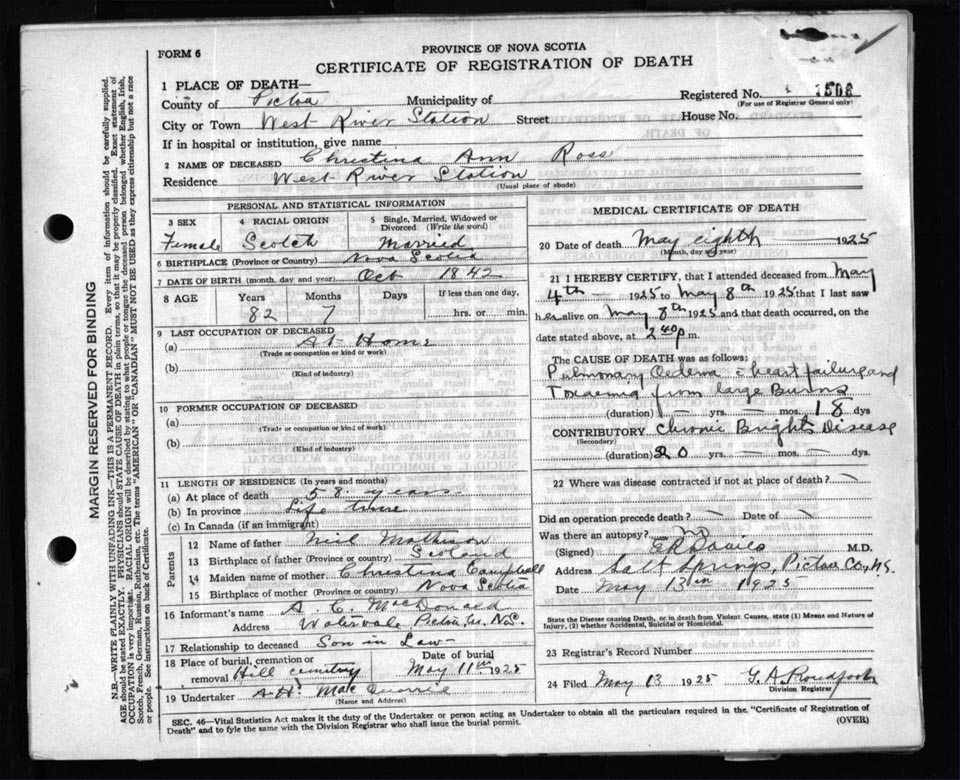 FORM 6
PROVINCE OF NOVA SCOTIA
CERTIFICATE OF REGISTRATION OF DEATH
1 PLACE OF DEATH—
County of Pictou Municipality of Registered No. 1508
(For use of Registrar General only)
City or Town West River Station Street House No.
If in hospital or institution, give name
2 NAME OF DECEASED Christina Ann Ross
Residence West River Station
(Usual place of abode)
PERSONAL AND STATISTICAL INFORMATION
3 SEX Female
4 RACIAL ORIGIN Scotch
5 Single, Married, Widowed or Divorced (Write the word) Married
6 BIRTHPLACE (Province or Country) Nova Scotia
7 DATE OF BIRTH (month, day and year) Oct 1842
8 AGE Years 82 Months 7 Days If less than one day, hrs. or min.
9 LAST OCCUPATION OF DECEASED
(a) At Home
(Trade or occupation or kind or work)
(b)
(Kind of industry)
10 FORMER OCCUPATION OF DECEASED
(a)
(Trade or occupation or kind of work)
(b)
(Kind of industry)
11 LENGTH OF RESIDENCE (In years and months)
(a) At place of death 58 years
(b) In province Life time
(c) In Canada (if an immigrant)
Parents
12 Name of father Neil Matheson
13 Birthplace of father (Province or country) Scotland
14 Maiden name of mother Christina Campbell
15 Birthplace of mother (Province or country) Nova Scotia
16 Informant's name A. C. MacDonald
Address Watervale Pictou Co. N.S.
17 Relationship to deceased Son in Law
18 Place of burial, cremation or removal Hill cemetery Date of burial May 11th 1925
19 Undertaker A. H.
(Name and Address)
MEDICAL CERTIFICATE OF DEATH
20 Date of death May eighth 1925
(Month, day and year)
21 I HEREBY CERTIFY, that I attended deceased from May
4th — 1925 to May 8th 1925 that I last saw
her alive on May 8th 1925 and that death occurred, on the
date stated above, at 2 40 p m.
The CAUSE OF DEATH was as follows:
Pulmonary Oedema c heart failure and
Toxaemia from large Burns
(duration) — yrs. — mos. 18 dys
CONTRIBUTORY Chronic Brights Disease
(Secondary)
(duration) 20 yrs. — mos. — dys.
22 Where was disease contracted if not at place of death? —
Did an operation precede death? — Date of —
Was there an autopsy? no
(Signed) M.D.
Address Salt Springs, Pictou Co, N.S.
Date May 13th 1925
State the Disease causing Death, or in death from Violent Causes, state (1) Means and Nature of
Injury, (2) whether Accidental, Suicidal or Homicidal.
23 Registrar's Record Number
24 Filed May 13 1925 G. A. Proudfoot
Division Registrar
SEC. 46—Vital Statistics Act makes it the duty of the Undertaker or person acting as Undertaker to obtain all the particulars required in the "Certificate of Registration of
Death" and to fyle the same with the Division Registrar who shall issue the burial permit. (OVER)
MARGIN RESERVED FOR BINDING
N.B.—WRITE PLAINLY WITH UNFADING INK—THIS IS A PERMANENT RECORD. Every item of information should be carefully supplied.
AGE should be stated EXACTLY. PHYSICIANS should STATE CAUSE OF DEATH in plain terms, so that it may be properly classified. Exact statement of
OCCUPATION is very important. RACIAL ORIGIN will be described by stating to what people or tongue the deceased person belonged, whether English, Irish,
Scotch, French, German, Russian, Ruthenian, etc. The terms "AMERICAN" or "CANADIAN" MUST NOT BE USED as they express citizenship but not a race
or people. See instructions on back of Certificate.